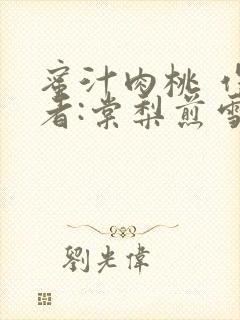 蜜汁肉桃 作
者:棠梨煎雪
劉光偉